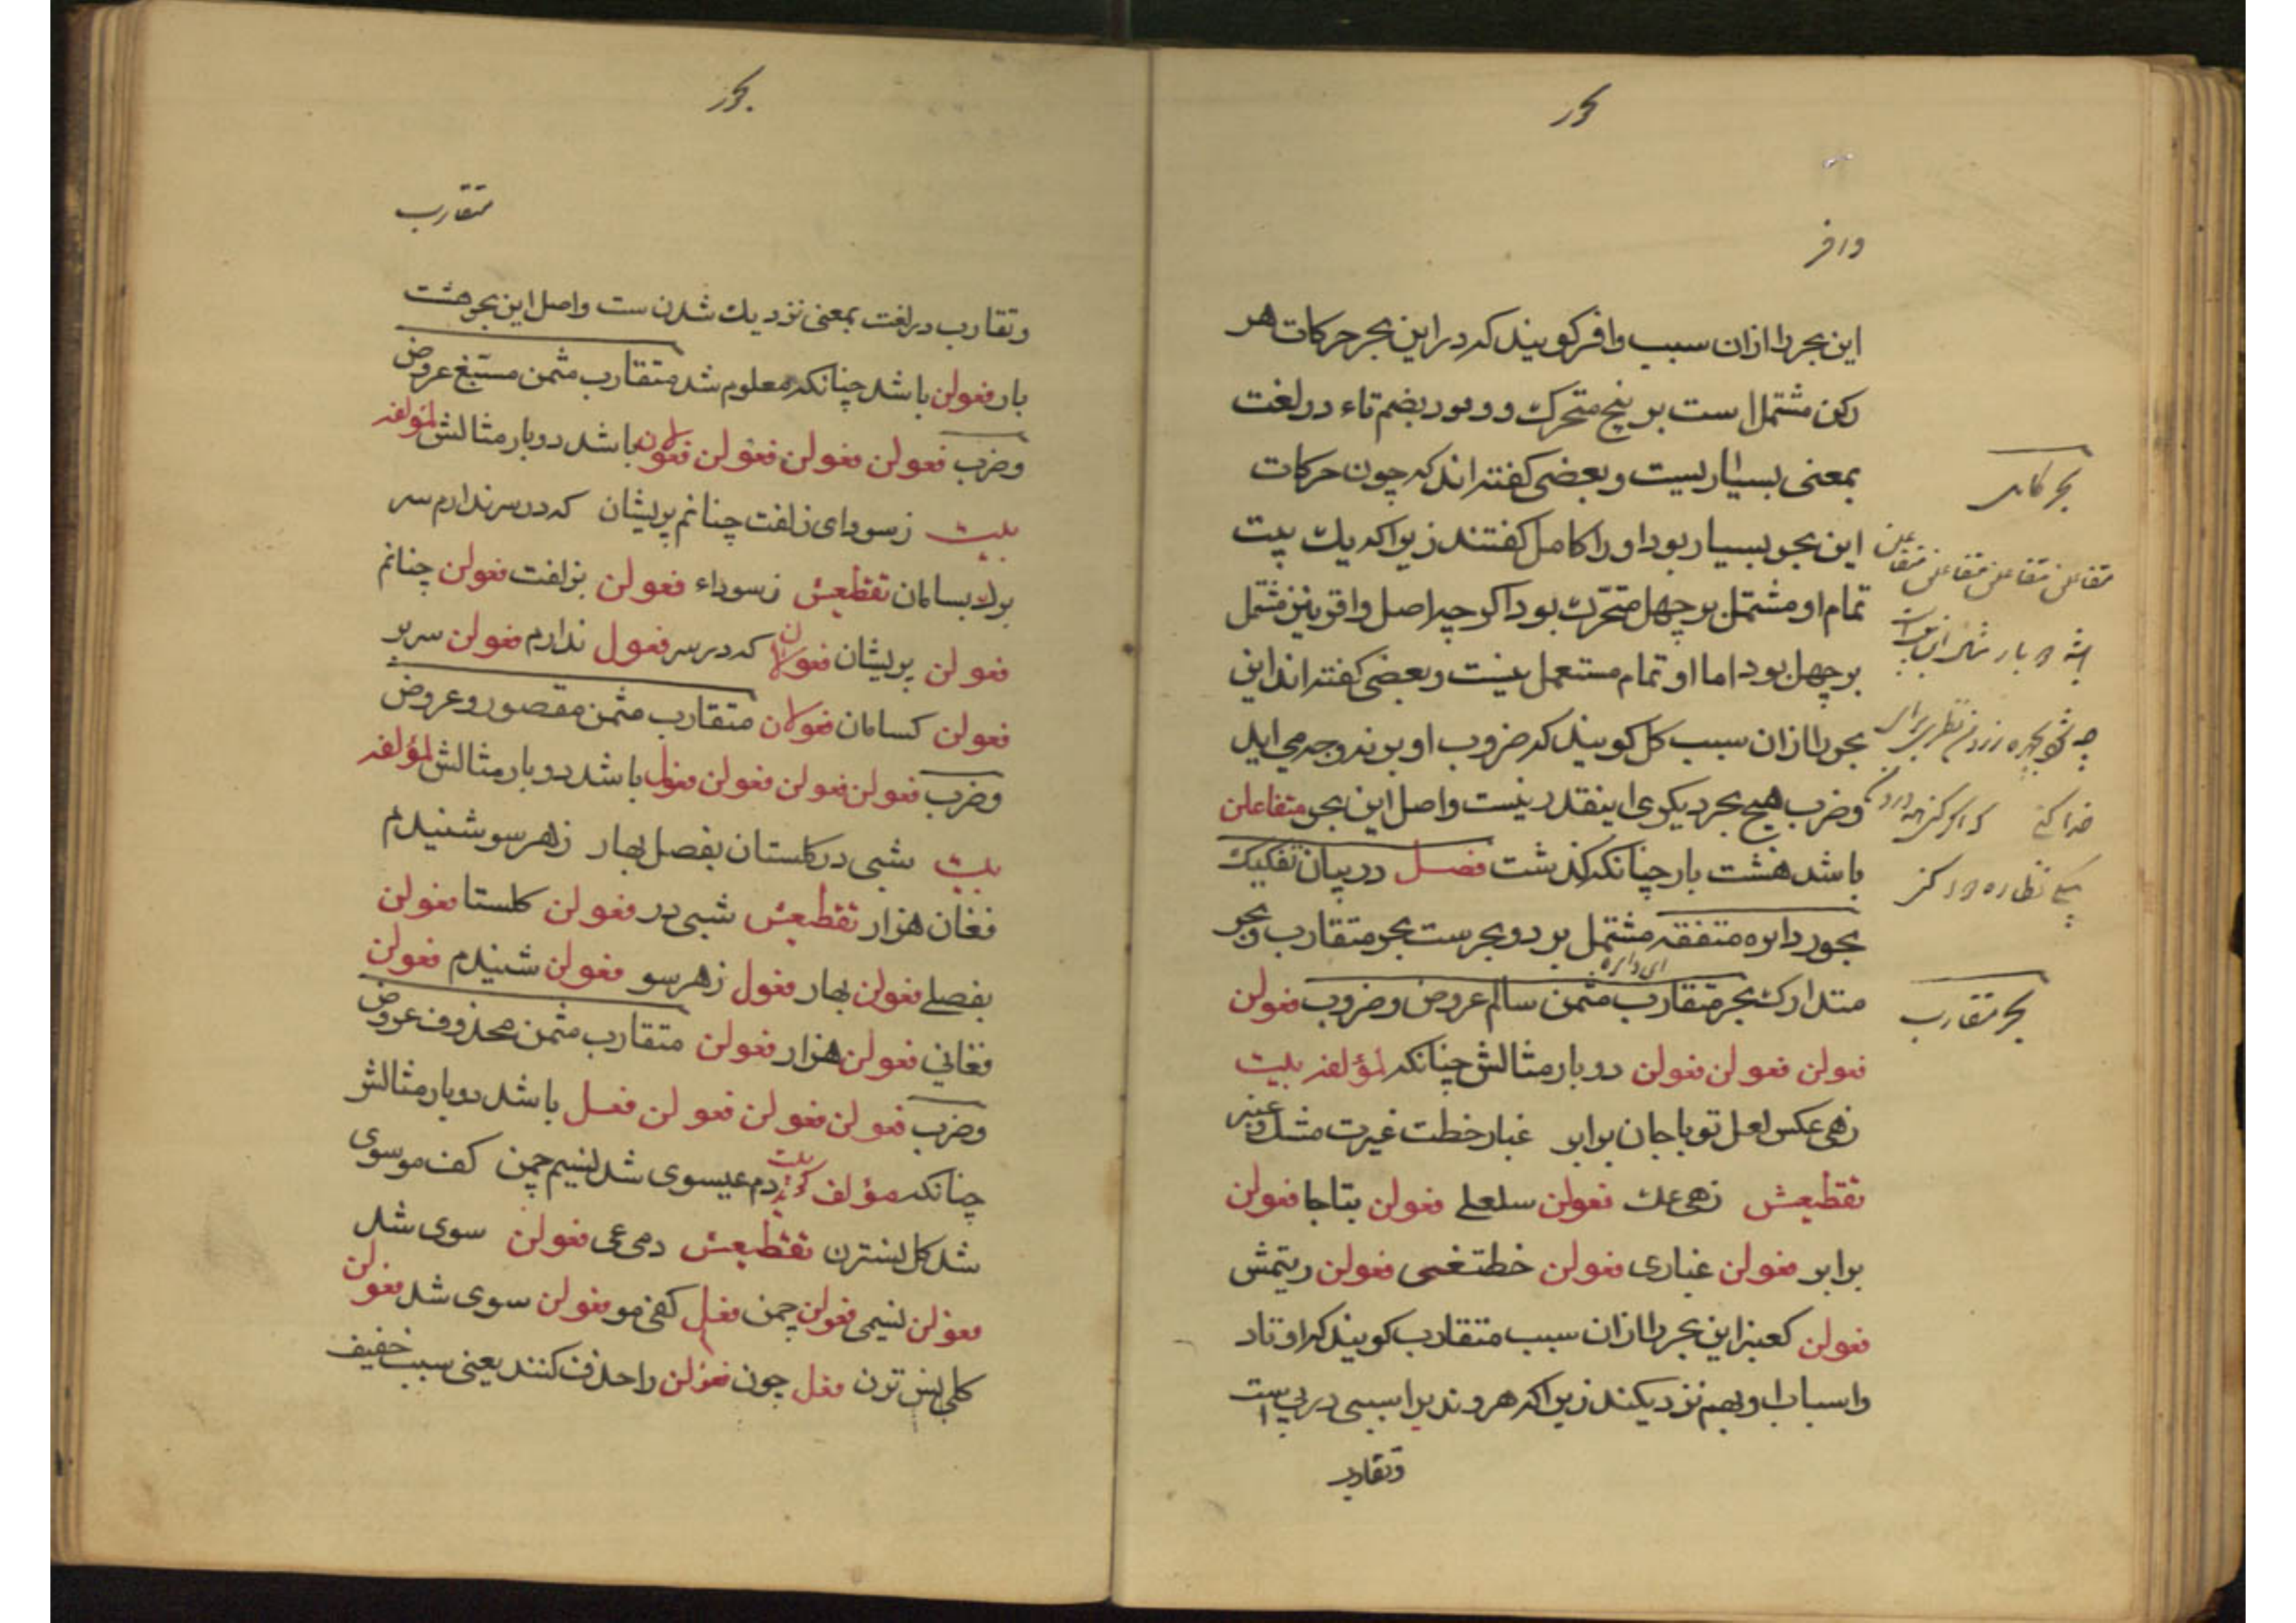 بحور
وافر
این بحر را ازان سبب وافر کویند که در این بحر حرکات هر
رکن مشتمل است بر پنج متحرک و وفور بضم تاء در لغت
بمعنی بسیاریست و بعضی کفته اند که چون حرکات
این بحر بسیار بود او را کامل کفتند زیرا که یك بیت
تمام او مشتمل بر چهل متحرک بود اکر چه اصل وافر نیز مشتمل
بر چهل بود اما او تمام مستعمل نیست و بعضی کفته اند این
بحر را ازان سبب کامل کویند که ضروب او بر نه وجه می اید
وضرب هیچ بحر دیکری اینقدر نیست واصل این بحر متفاعلن
باشد هشت بار چنانکه کذشت فصل در بیان تفکیك
بحور دایره متفقه مشتمل بر دو بحرست بحر متقارب وبحر
ای دایره
متدارک بحر متقارب مثمن سالم عروض وضروب فعولن
فعولن فعولن فعولن دوبار مثالش چنانکه لمؤلفه بیت
زهی عکس لعل تو با جان برابر غبار خطت غیرت مشك وعنبر
تقطیعش زهی عك فعولن سلعلے فعولن بتا جا فعولن
برابر فعولن غباری فعولن خطتغی فعولن ریتمش
فعولن کعنبر این بحر را ازان سبب متقارب کویند که اوتاد
واسباب او بهم نزدیکند زیرا که هر وتد یرا سببی در پی است
وتقارب
بحر کامل
متفاعلن متفاعلن متفاعلن متفاعلن
بحر متقارب
بحور
متقارب
وتقارب در لغت بمعنی نزدیك شدن ست واصل این بحر هشت
بار فعولن باشد چنانکه معلوم شد متقارب مثمن مسبغ عروض
وضرب فعولن فعولن فعولن فعولان باشد دوبار مثالش لمؤلفه
بیت زسودای زلفت چنانم پریشان که در سر ندارم سر
برك بسامان تقطیعش زسوداء فعولن بزلفت فعولن چنانم
فعولن پریشان فعولان که در سر فعول ندارم فعولن سر بر
فعولن کسامان فعولان متقارب مثمن مقصور وعروض
وضرب فعولن فعولن فعولن فعول باشد دوبار مثالش لمؤلفه
بیت شبی در کلستان بفصل بهار زهر سو شنیدم
فغان هزار تقطیعش شبی در فعولن کلستا فعولن
بفصلے فعولن بهار فعول زهر سو فعولن شنیدم فعولن
فغانی فعولن هزار فعولن متقارب مثمن محذوف عروض
وضرب فعولن فعولن فعولن فعل باشد دوبار مثالش
چنانکه مؤلف کوید بیت دم عیسوی شد نسیم چمن کف موسوی
شد کل نسترن تقطیعش دمی عی فعولن سوی شد
فعولن نسیمی فعولن چمن فعل کفی مو فعولن سوی شد فعولن
کلی نس ترن فعل چون فعولن را حذف کنند یعنی سبب خفیف